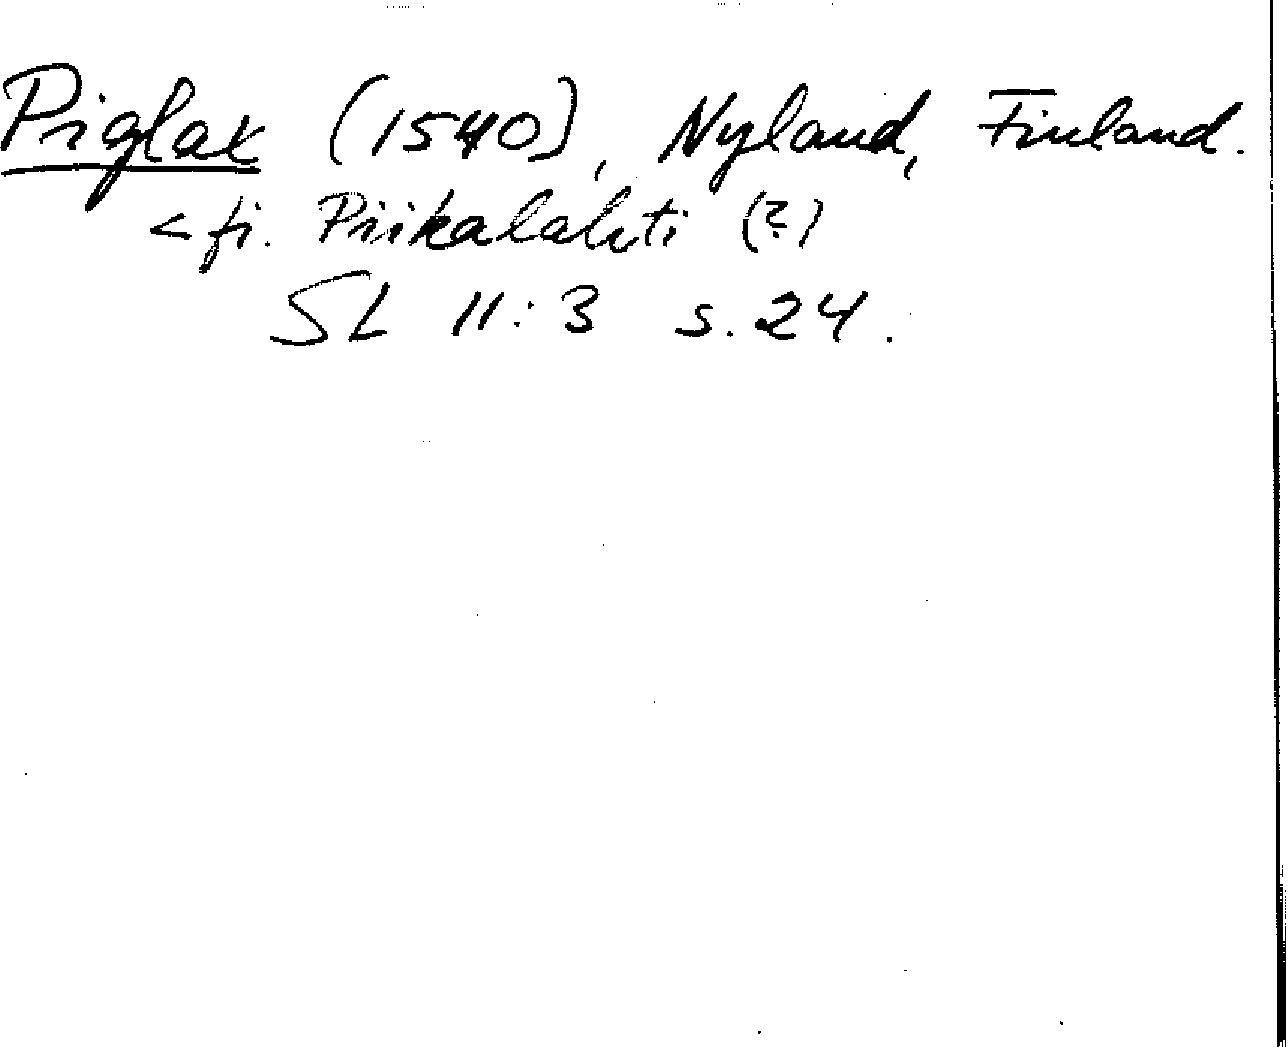 Piglax (1540), Nyland, Finland.
< fi. Piikalahti (?)
SL 11:3 s. 24.